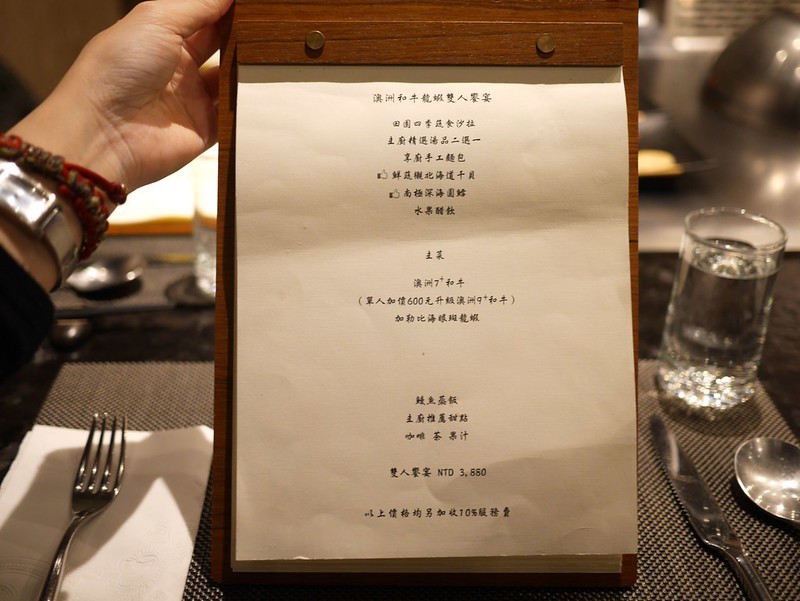 澳洲和牛龍蝦雙人饗宴
田園四季蔬食沙拉
主廚精選湯品二選一
享廚手工麵包
鮮蔬襯北海道干貝
南極深海圓鱈
水果醋飲
主菜
澳洲7+和牛
(單人加價600元升級澳洲9+和牛)
加勒比海眼斑龍蝦
鰻魚蒸飯
主廚推薦甜點
咖啡 茶 果汁
雙人饗宴 NTD 3,880
以上價格均另加收10%服務費